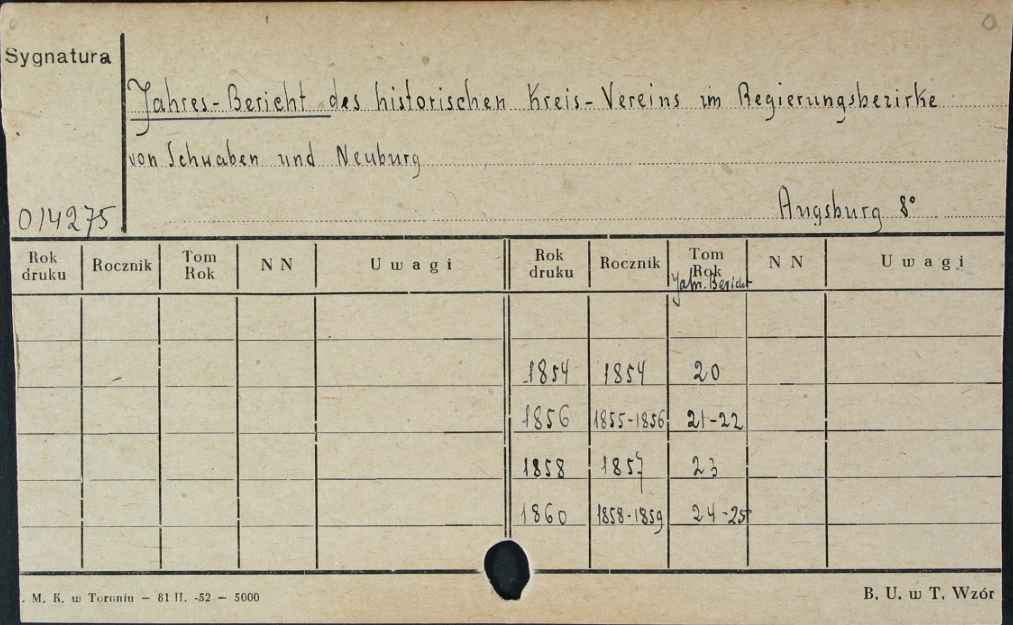 Sygnatura
Jahres-Bericht des historischen Kreis-Vereins im Regierungsbezirke
von Schwaben und Neuburg
014275
Augsburg 8°
Rok druku Rocznik Tom Rok N N Uwagi Rok druku Rocznik Tom Rok N N Uwagi
Jahr. Bericht
1854 1854 20
1856 1855-1856 21-22
1858 1857 23
1860 1858-1859 24-25
. M. K. w Toruniu — 81 II. -52 — 5000
B. U. w T. Wzór